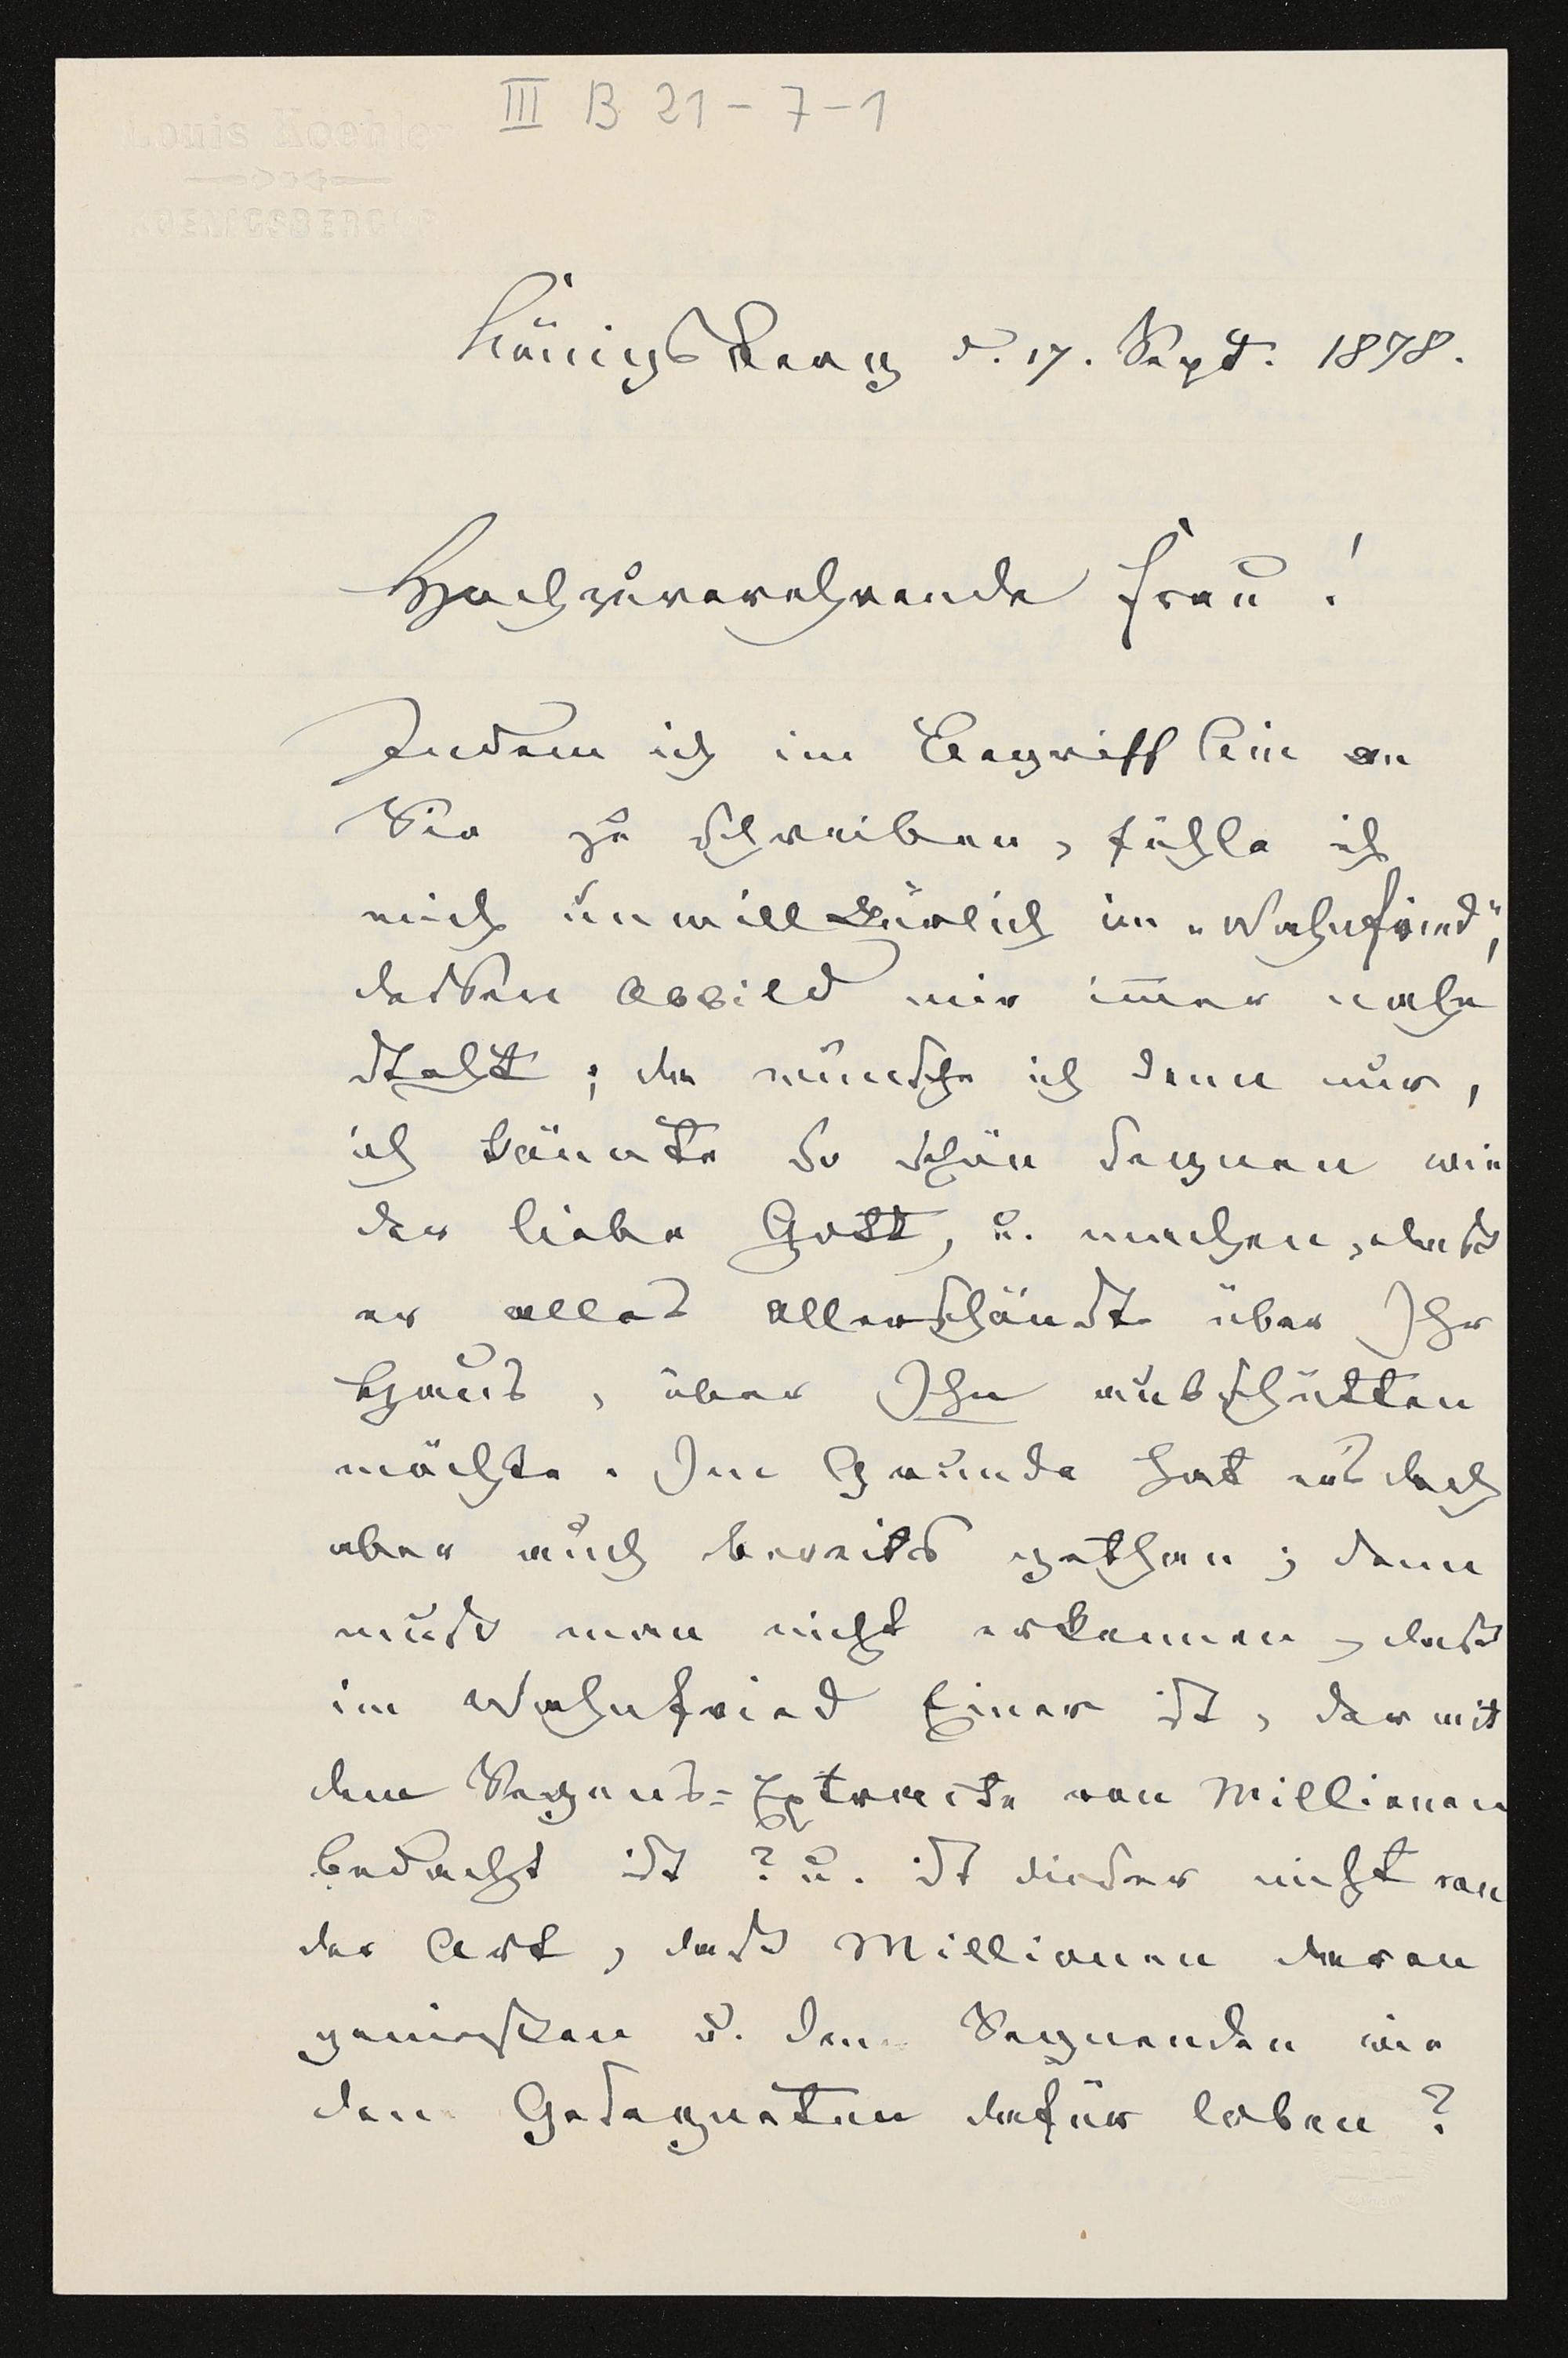 III B 21-7-1
Louis Koehler
KOENIGSBERG
Königsberg d. 17. Sept. 1878.
Hochzuverehrende Frau!
Indem ich im Begriff bin an
Sie zu schreiben, fühle ich
mich unwillkürlich im „Wahnfried",
dessen Abbild mir im̅er nahe
steht; da wünsche ich denn nur,
ich könnte so schön segnen wie
der liebe Gott, u. machen, dass
er alles allerschönste über Ihr
Haus, über Ihn ausschütten
möchte. Im Grunde hat er's doch
aber auch bereits gethan; denn
muss man nicht erkennen, dass
im Wahnfried Einer ist, der mit
dem Segens=Extracte von Millionen
bedacht ist? u. ist dieser nicht von
der Art, dass Millionen daran
geniessen u. den Segnenden wie
den Gesegneten dafür loben?